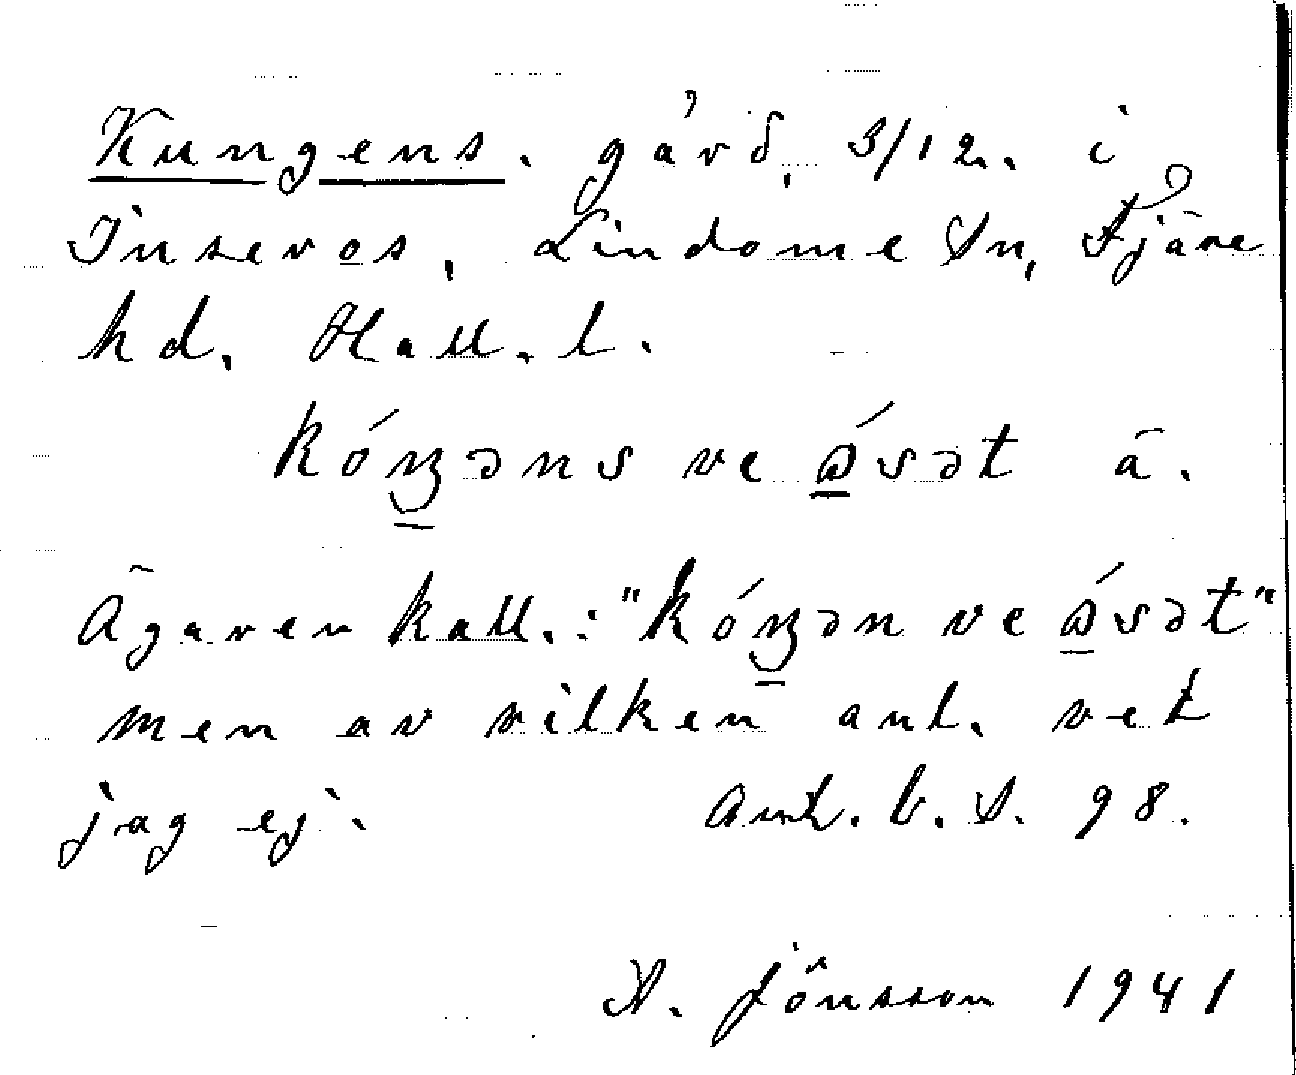 Kungens. gård, 3/12. i
Inseros, Lindome Sn, Fjäre
hd. Hall. l.
kóŋəns ve ásət ä.
Ägaren kall.: "kóŋən ve ásət"
men av vilken anl. vet
jag ej. Ant. b. S. 98.
A. Jönsson 1941